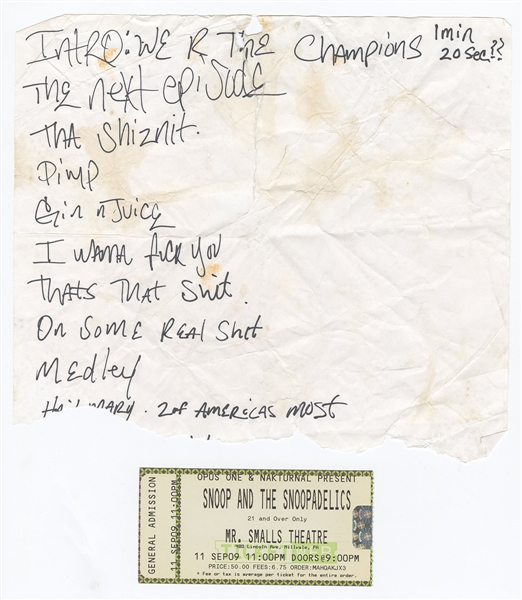 INTRO: WE R THE Champions 1min 20 sec??
THE next episode
THA Shiznit.
Pimp
Gin n Juice
I WANNA fuck you
THATS THAT Shit.
On Some Real Shit
Medley
Hail MARY . 2 of AMERICAS MOST
GENERAL ADMISSION
11 SEP09 11:00PM
OPUS ONE & NAKTURNAL PRESENT
SNOOP AND THE SNOOPADELICS
21 and Over Only
MR. SMALLS THEATRE
400 Lincoln Ave, Millvale, PA
11 SEP09 11:00PM DOORS@9:00PM
PRICE:50.00 FEES:6.75 ORDER:MAHQAKJX3
* fee or tax is average per ticket for the entire order.